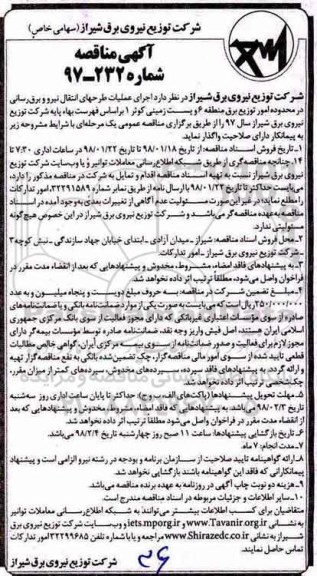 شرکت توزیع نیروی برق شیراز (سهامی خاص)
آگهی مناقصه
شماره ۲۳۲-۹۷
شرکت توزیع نیروی برق شیراز در نظر دارد اجرای عملیات طرحهای انتقال نیرو و برق رسانی
در محدوده امور توزیع برق منطقه ۶ و پست زمینی کوثر ۱ براساس فهرست بهاء پایه شرکت توزیع
نیروی برق شیراز سال ۹۷ را از طریق برگزاری مناقصه عمومی یک مرحله‌ای با شرایط مشروحه زیر
به پیمانکار دارای صلاحیت واگذار نماید.
۱- تاریخ فروش اسناد مناقصه: از تاریخ ۹۸/۰۱/۱۸ تا تاریخ ۹۸/۰۱/۲۲ در ساعات اداری ۷:۳۰ تا
۱۴، چنانچه مناقصه‌گری از طریق شبکه اطلاع‌رسانی معاملات توانیر و یا وب‌سایت شرکت توزیع
نیروی برق شیراز نسبت به تهیه اسناد مناقصه اقدام و تمایل به شرکت در مناقصه مذکور را دارد،
می‌بایست حداکثر تا تاریخ ۹۸/۰۱/۲۲ با ارسال نامه از طریق نمابر شماره ۳۲۲۹۱۵۸۹ امور تدارکات
را مطلع نماید؛ در غیر این صورت مسئولیت عدم آگاهی از تغییرات بعدی به‌وجود آمده در اسناد
مناقصه به عهده مناقصه‌گر می‌باشد و شرکت توزیع نیروی برق شیراز در این خصوص هیچ‌گونه
مسئولیتی ندارد.
۲- محل فروش اسناد مناقصه: شیراز - میدان آزادی - ابتدای خیابان جهاد سازندگی - نبش کوچه ۳
- شرکت توزیع نیروی برق شیراز - امور تدارکات.
۳- به پیشنهادهای فاقد امضاء، مشروط، مخدوش و پیشنهادهایی که بعد از انقضاء مدت مقرر در
فراخوان واصل می‌شود، مطلقاً ترتیب اثر داده نخواهد شد.
۴- مبلغ تضمین شرکت در مناقصه: به حروف مبلغ دویست و پنجاه میلیون و به عدد
۲۵۰/۰۰۰/۰۰۰ ریال است که می‌بایست به صورت یکی از موارد ضمانتنامه بانکی و یا ضمانتنامه‌های
صادره از سوی مؤسسات اعتباری غیربانکی که دارای مجوز فعالیت از سوی بانک مرکزی جمهوری
اسلامی ایران هستند، اصل فیش واریز وجه نقد، ضمانت‌نامه صادره توسط مؤسسات بیمه‌گر دارای
مجوز لازم برای فعالیت و صدور ضمانت‌نامه از سوی بیمه مرکزی ایران، گواهی خالص مطالبات
قطعی تایید شده از سوی امور مالی مناقصه‌گزار، چک تضمین شده بانکی به نفع مناقصه‌گزار تهیه
و ارائه گردد. به پیشنهادهای فاقد سپرده، سپرده‌های مخدوش، سپرده‌های کمتر از میزان مقرر،
چک شخصی ترتیب اثر داده نخواهد شد.
۵- مهلت تحویل پیشنهادها (پاکت‌های الف، ب و ج): حداکثر تا پایان ساعت اداری روز سه‌شنبه
تاریخ ۹۸/۰۲/۳ می‌باشد. به پیشنهادهایی که فاقد امضاء، مشروط، مخدوش و پیشنهادهایی که بعد
از انقضاء مدت مقرر در فراخوان واصل می‌شود مطلقاً ترتیب اثر داده نخواهد شد.
۶- تاریخ بازگشایی پیشنهادها: ساعت ۱۱ صبح روز چهارشنبه تاریخ ۹۸/۲/۴ می‌باشد.
۷- مدت انجام: ۷ ماه.
۸- ارائه گواهینامه تایید صلاحیت از سازمان برنامه و بودجه در رشته نیرو الزامی است و پیشنهاد
پیمانکارانی که فاقد این گواهینامه باشند بازگشایی نخواهد شد.
۹- هزینه دو نوبت چاپ آگهی در روزنامه به عهده برنده مناقصه می‌باشد.
۱۰- سایر اطلاعات و جزئیات مربوطه در اسناد مناقصه مندرج است.
متقاضیان برای کسب اطلاعات بیشتر می‌توانند به شبکه اطلاع‌رسانی معاملات توانیر
به نشانی www.Tavanir.org.ir و iets.mporg.ir و وب‌سایت شرکت توزیع نیروی برق
شیراز به نشانی www.Shirazedc.co.ir مراجعه و یا با شماره تلفن ۳۲۲۹۹۶۸۵ امور تدارکات
تماس حاصل نمایند.
شرکت توزیع نیروی برق شیراز